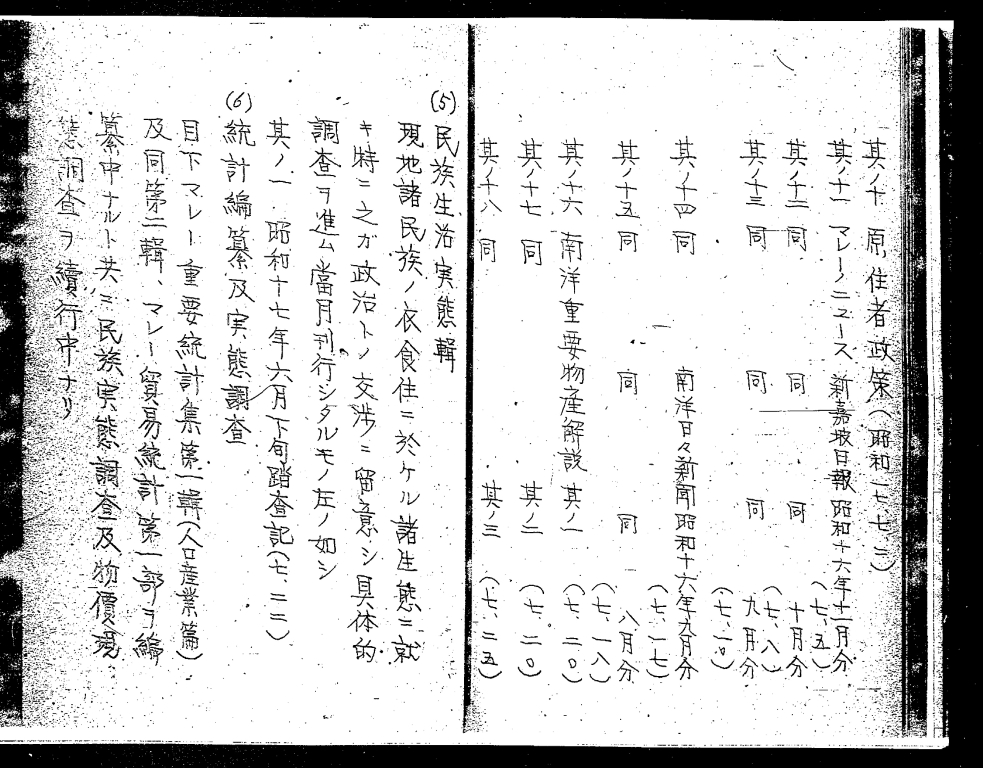 其ノ十 原住者政策(昭和一七、七、三)
其ノ十一 マレーノニュース 新嘉坡日報 昭和十六年十一月分(七、五)
其ノ十二 同 同 同 十月分(七、八)
其ノ十三 同 同 同 九月分(七、一〇)
其ノ十四 同 南洋日々新聞 昭和十六年九月分(七、一七)
其ノ十五 同 同 同 八月分(七、一八)
其ノ十六 南洋重要物産解説 其ノ一(七、二〇)
其ノ十七 同 其ノ二(七、二〇)
其ノ十八 同 其ノ三(七、二五)
(5)民族生活実態輯
現地諸民族ノ衣食住ニ於ケル諸生態ニ就
キ特ニ之ガ政治トノ交渉ニ留意シ具体的
調査ヲ進ム當月刊行シタルモノ左ノ如シ
其ノ一 昭和十七年六月下旬踏査記(七、二二)
(6)統計編纂及実態調査
目下マレー重要統計集第一輯(人口産業篇)
及同第二輯、マレー貿易統計第一部ヲ編
纂中ナルト共ニ民族実態調査及物價現、
態調査ヲ續行中ナリ